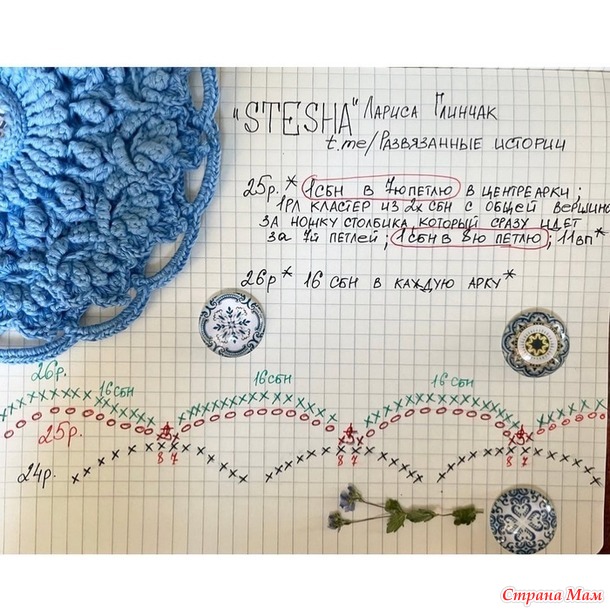 "STESHA" Лариса Глинчак
t.me/Развязанные истории
25р. * 1сбн в 7ю петлю в центре арки ;
1рл кластер из 2х сбн с общей вершино
за ножку столбика, который сразу идет
за 7й петлей ; 1сбн в 8ю петлю ; 11вп *
26р * 16 сбн в каждую арку *
26р. 16 сбн 16 сбн 16 сбн
25р.
8 7 8 7 8 7
24р.
Страна Мам